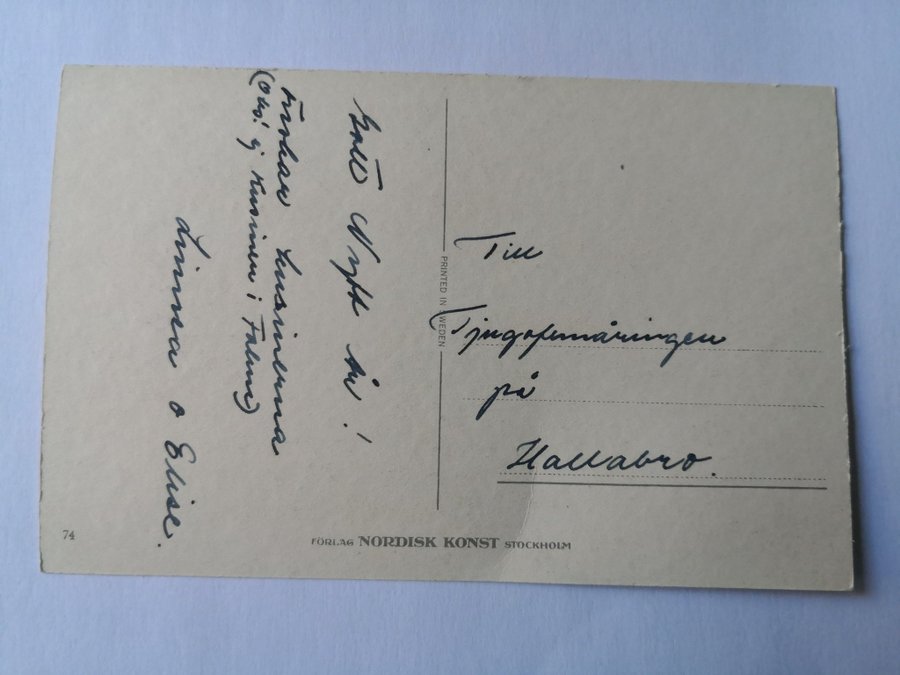 Gott Nytt År!
kusinerna
(Obs! ej kusinen i Falun)
Linnea o Elise.
PRINTED IN SWEDEN
Till
Tjugofemåringen
på
Hallabro.
74
FÖRLAG NORDISK KONST STOCKHOLM